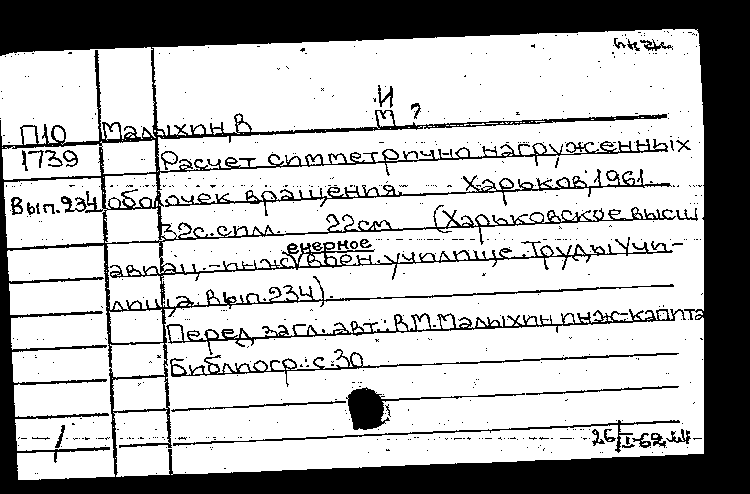 И
М ?
П10 Малыхин, В
1739 Расчет симметрично нагруженных
Вып.234 оболочек вращения. Харьков, 1961.
32с. с илл. 22см (Харьковское высш.
енерное
авиац.-инж. воен. училище. Труды Учи-
лища. Вып.234).
Перед загл. авт.: В.М. Малыхин, инж-капита
Библиогр.: с.30
26/I-62